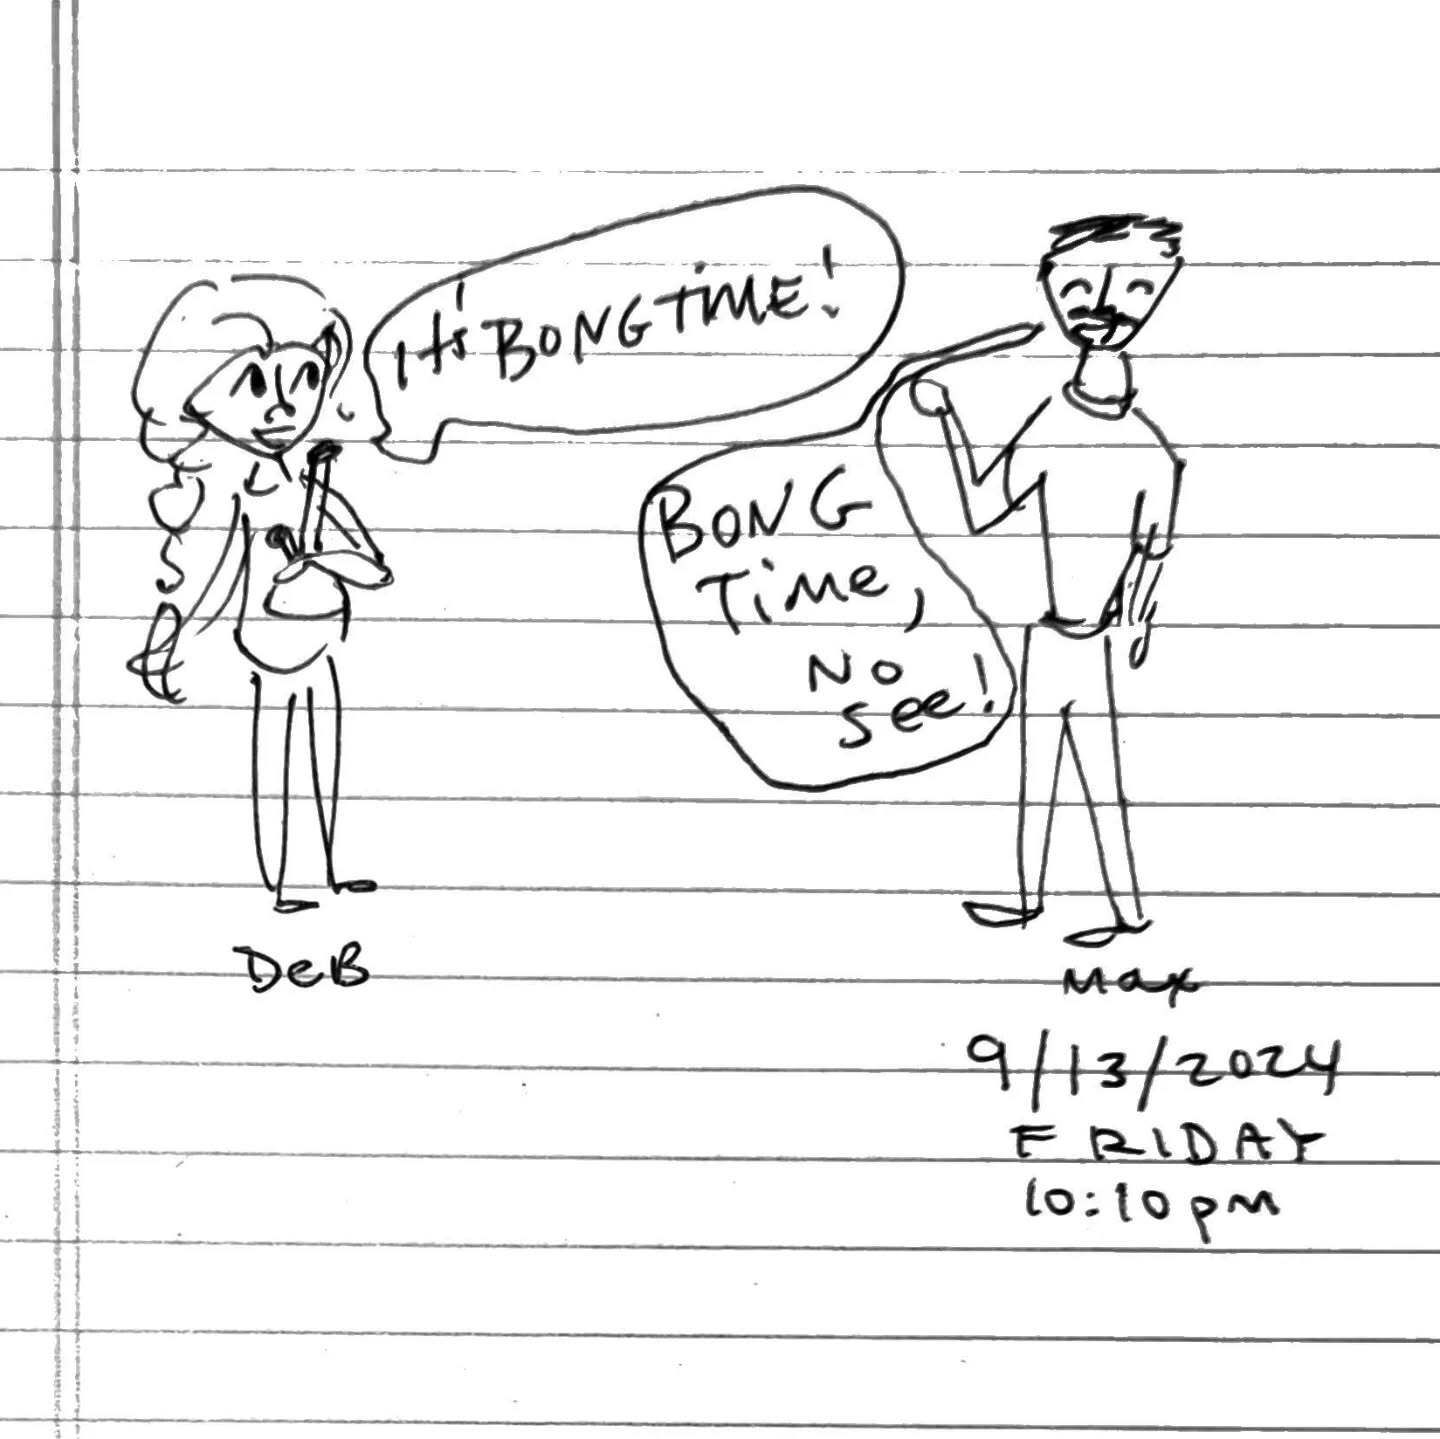 it's BONG TIME!
BONG
TiMe,
No
See!
DeB
Max
9/13/2024
FRIDAY
10:10pm